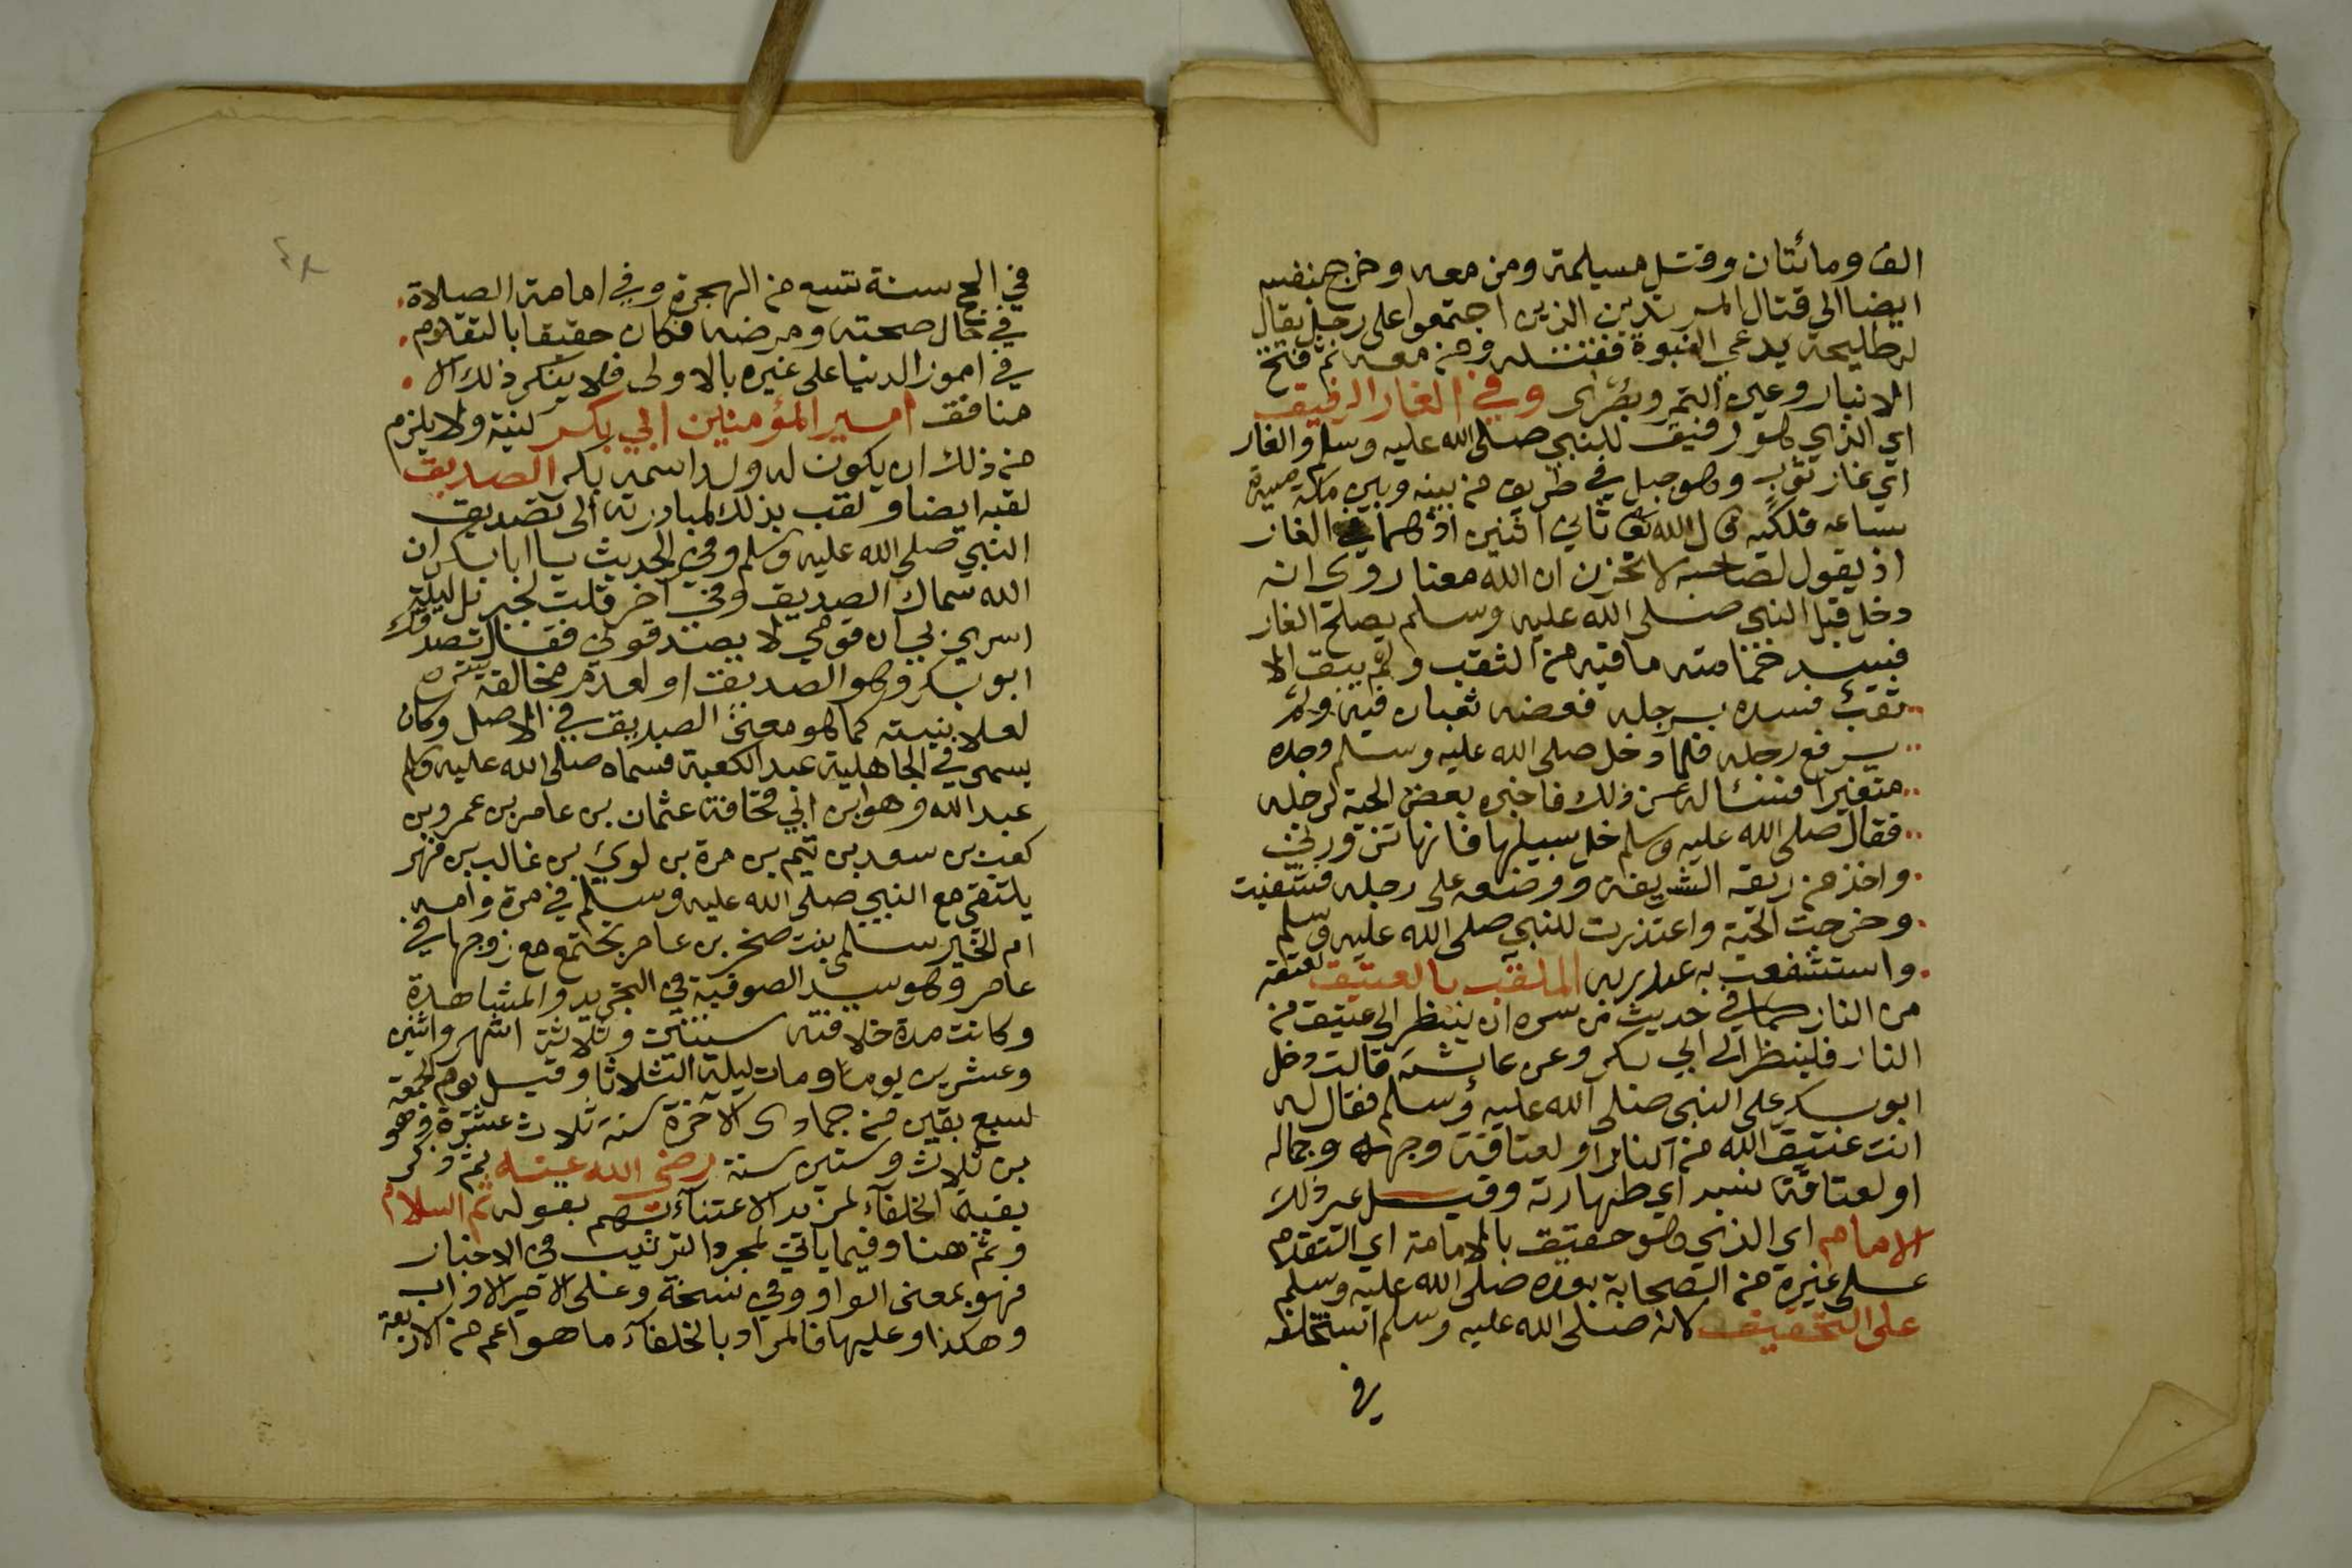 الف ومائتان وقتل مسيلمة ومن معه وخرج بنفسه
ايضا الى قتال المرتدين الذين اجتمعوا على رجل يقال
له طليحة يدعي النبوة فقتله ومن معه ثم فتح
الانبار وعين التمر وبصرى وفي الغار الرفيق
اي الذي هو رفيق للنبي صلى الله عليه وسلم والغار
اي غار ثور وهو جبل في طريق من بينه وبين مكة مسيرة
ساعة فلكية قال الله تعالى ثاني اثنين اذ هما في الغار
اذ يقول لصاحبه لا تحزن ان الله معنا روى انه
دخل قبل النبي صلى الله عليه وسلم يصلح الغار
فسد ما فيه من الثقب ولم يبق الا
ثقب فسده برجله فعضه ثعبان فيه ولم
يرفع رجله فلما دخل صلى الله عليه وسلم وجده
متغيرا فسأله عن ذلك فاخبره بعض الحية لرجله
فقال صلى الله عليه وسلم خل سبيلها فانها تزورني
واخذ من ريقه الشريفة ووضعه على رجله فشفيت
وخرجت الحية واعتذرت للنبي صلى الله عليه وسلم
واستشفعت به الملقب بالعتيق لعتقه
من النار كما في حديث من سره ان ينظر الى عتيق من
النار فلينظر الى ابي بكر وعن عائشة قالت دخل
ابو بكر على النبي صلى الله عليه وسلم فقال له
انت عتيق الله من النار او لعتاقة وجهه وجماله
او لعتاقة نسبه اي طهارته وقيل غير ذلك
الامام اي الذي هو حقيق بالامامة اي التقدم
على غيره من الصحابة بعده صلى الله عليه وسلم
على التحقيق لانه صلى الله عليه وسلم استخلفه
في
٤٨
في الحج سنة تسع من الهجرة وفي امامة الصلاة
في حال صحته ومرضه فكان حقيقا بالتقدم
في امور الدنيا على غيره بالاولى فلا ينكر ذلك الا
منافق امير المؤمنين ابي بكر كنيته ولا يلزم
من ذلك ان يكون له ولد اسمه بكر الصديق
لقبه ايضا ولقب بذلك لمبادرته الى تصديق
النبي صلى الله عليه وسلم وفي الحديث يا ابا بكر ان
الله سماك الصديق وفي اخر قلت لجبريل ليلة
اسري بي ان قومي لا يصدقوني فقال تصدقك
ابو بكر وهو الصديق او لعدم مخالفة سره
لعلانيته كما هو معنى الصديق في الاصل وكان
يسمى في الجاهلية عبد الكعبة فسماه صلى الله عليه وسلم
عبد الله وهو ابن ابي قحافة عثمان بن عامر بن عمرو بن
كعب بن سعد بن تيم بن مرة بن لوي بن غالب بن فهر
يلتقي مع النبي صلى الله عليه وسلم في مرة وامه
ام الخير سلمى بنت صخر بن عامر تجتمع مع زوجها في
عامر وهو سيد الصوفية في التجريد والمشاهدة
وكانت مدة خلافته سنتين وثلاثة اشهر واثنين
وعشرين يوما ومات ليلة الثلاثا وقيل يوم الجمعة
لسبع بقين من جمادى الاخرة سنة ثلاث عشرة وهو
بن ثلاث وستين سنة رضي الله عنه ثم ذكر
بقية الخلفآء لمزيد الاعتنآء بهم بقوله ثم السلام
وثم هنا وفيما ياتي لمجرد الترتيب في الاخبار
فهو بمعنى الواو وفي نسخة وعلى الاخير الاواب
وهكذا وعليها فالمراد بالخلفآء ما هو اعم من الاربعة